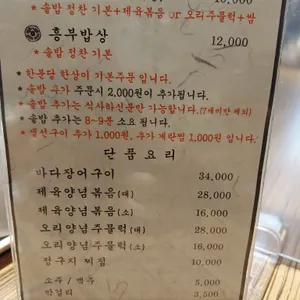 * 솥밥 정찬 기본+제육볶음 or 오리주물럭+쌈
흥부밥상 12,000
* 솥밥 정찬 기본
* 한분당 한상이 기본주문 입니다.
* 솥밥 추가 주문시 2,000원이 추가됩니다.
* 솥밥 추가는 식사하신분만 가능합니다.(7세미만 제외)
* 솥밥 추가는 8~9분 소요 됩니다.
* 생선구이 추가 1,000원, 추가 계란찜 1,000원 입니다.
단품요리
바다장어구이 34,000
제육양념볶음(대) 28,000
제육양념볶음(소) 16,000
오리양념주물럭(대) 28,000
오리양념주물럭(소) 16,000
정구지 찌짐 10,000
소주 / 맥주 5,000
막걸리 3,500